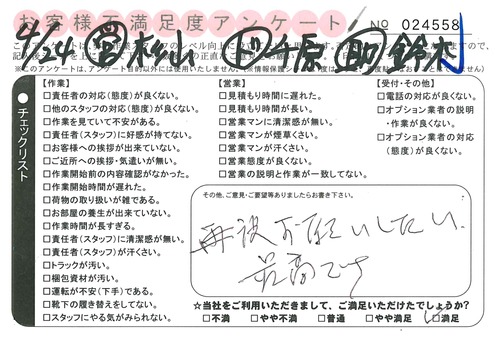 お客様不満足度アンケート
NO 024558
4/24 営 松山 ド 千原 助 鈴木
※このアンケートは、アンケート目的以外には使用いたしません。
チェックリスト
【作業】
□責任者の対応(態度)が良くない。
□他のスタッフの対応(態度)が良くない。
□作業を見ていて不安がある。
□責任者(スタッフ)に好感が持てない。
□お客様への挨拶が出来ていない。
□ご近所への挨拶・気遣いが無い。
□作業開始前の内容確認がなかった。
□作業開始時間が遅れた。
□荷物の取り扱いが雑である。
□お部屋の養生が出来ていない。
□作業時間が長すぎる。
□責任者(スタッフ)に清潔感が無い。
□責任者(スタッフ)が汗くさい。
□トラックが汚い。
□梱包資材が汚い。
□運転が不安(下手)である。
□靴下の履き替えをしてない。
□スタッフにやる気がみられない。
【営業】
□見積もり時間に遅れた。
□見積もり時間が長い。
□営業マンに清潔感が無い。
□営業マンが煙草くさい。
□営業マンが汗くさい。
□営業態度が良くない。
□営業の説明と作業が一致してない。
【受付・その他】
□電話の対応が良くない。
□オプション業者の説明
・作業が良くない。
□オプション業者の対応
(態度)が良くない。
その他、ご意見・ご要望等ありましたらお書き下さい。
再度お願いしたい。
最高です
☆当社をご利用いただきまして、ご満足いただけたでしょうか?
□不満 □やや不満 □普通 □やや満足 □満足